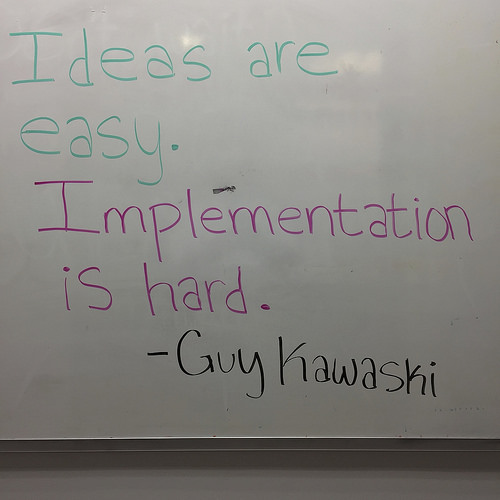 Ideas are
easy.
Implementation
is hard.
-Guy Kawaski